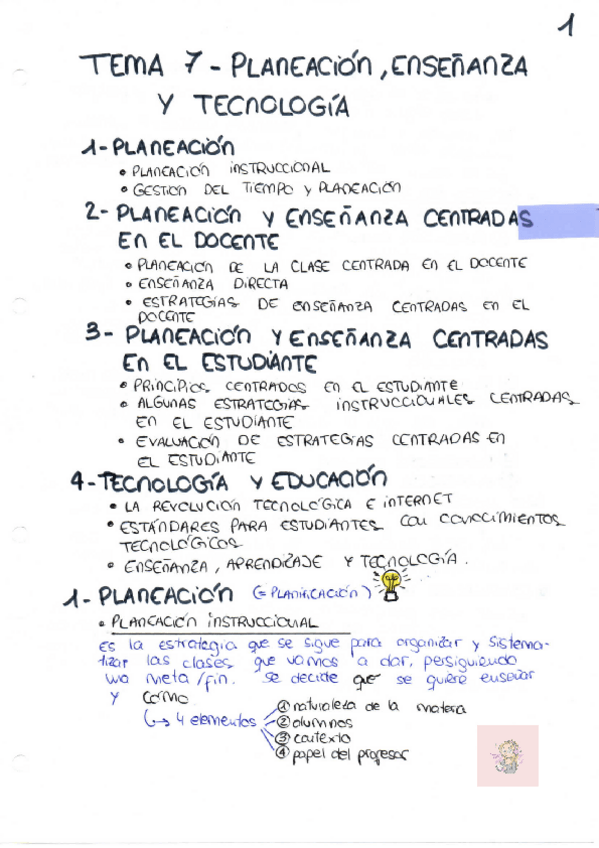 1
TEMA 7 - PLANEACIÓN, ENSEÑANZA
Y TECNOLOGÍA
1- PLANEACIÓN
• PLANEACIÓN INSTRUCCIONAL
• GESTION DEL TIEMPO Y PLANEACIÓN
2- PLANEACIÓN Y ENSEÑANZA CENTRADAS
EN EL DOCENTE
• PLANEACIÓN DE LA CLASE CENTRADA EN EL DOCENTE
• ENSEÑANZA DIRECTA
• ESTRATEGIAS DE ENSEÑANZA CENTRADAS EN EL
DOCENTE
3- PLANEACIÓN Y ENSEÑANZA CENTRADAS
EN EL ESTUDIANTE
• PRINCIPIOS CENTRADOS EN EL ESTUDIANTE
• ALGUNAS ESTRATEGIAS INSTRUCCIONALES CENTRADAS
EN EL ESTUDIANTE
• EVALUACIÓN DE ESTRATEGIAS CENTRADAS EN
EL ESTUDIANTE
4- TECNOLOGÍA Y EDUCACIÓN
• LA REVOLUCIÓN TECNOLÓGICA E INTERNET
• ESTÁNDARES PARA ESTUDIANTES CON CONOCIMIENTOS
TECNOLÓGICOS
• ENSEÑANZA, APRENDIZAJE Y TECNOLOGÍA.
1- PLANEACIÓN (= PLANIFICACIÓN)
• PLANEACIÓN INSTRUCCIONAL
Es la estrategia que se sigue para organizar y sistema-
tizar las clases que vamos a dar, persiguiendo
una meta/fin. Se decide que se quiere enseñar
y como
↳ 4 elementos
① naturaleza de la materia
② alumnos
③ contexto
④ papel del profesor